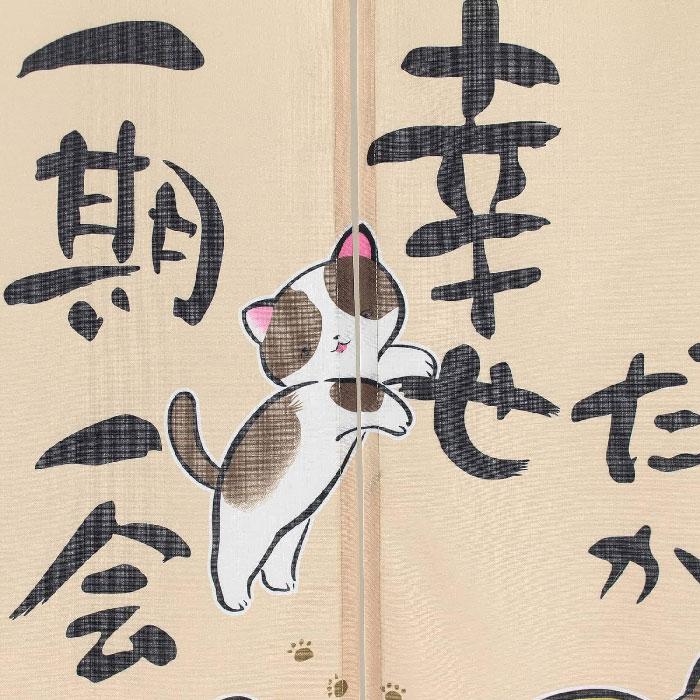 だか
幸せ
一期一会